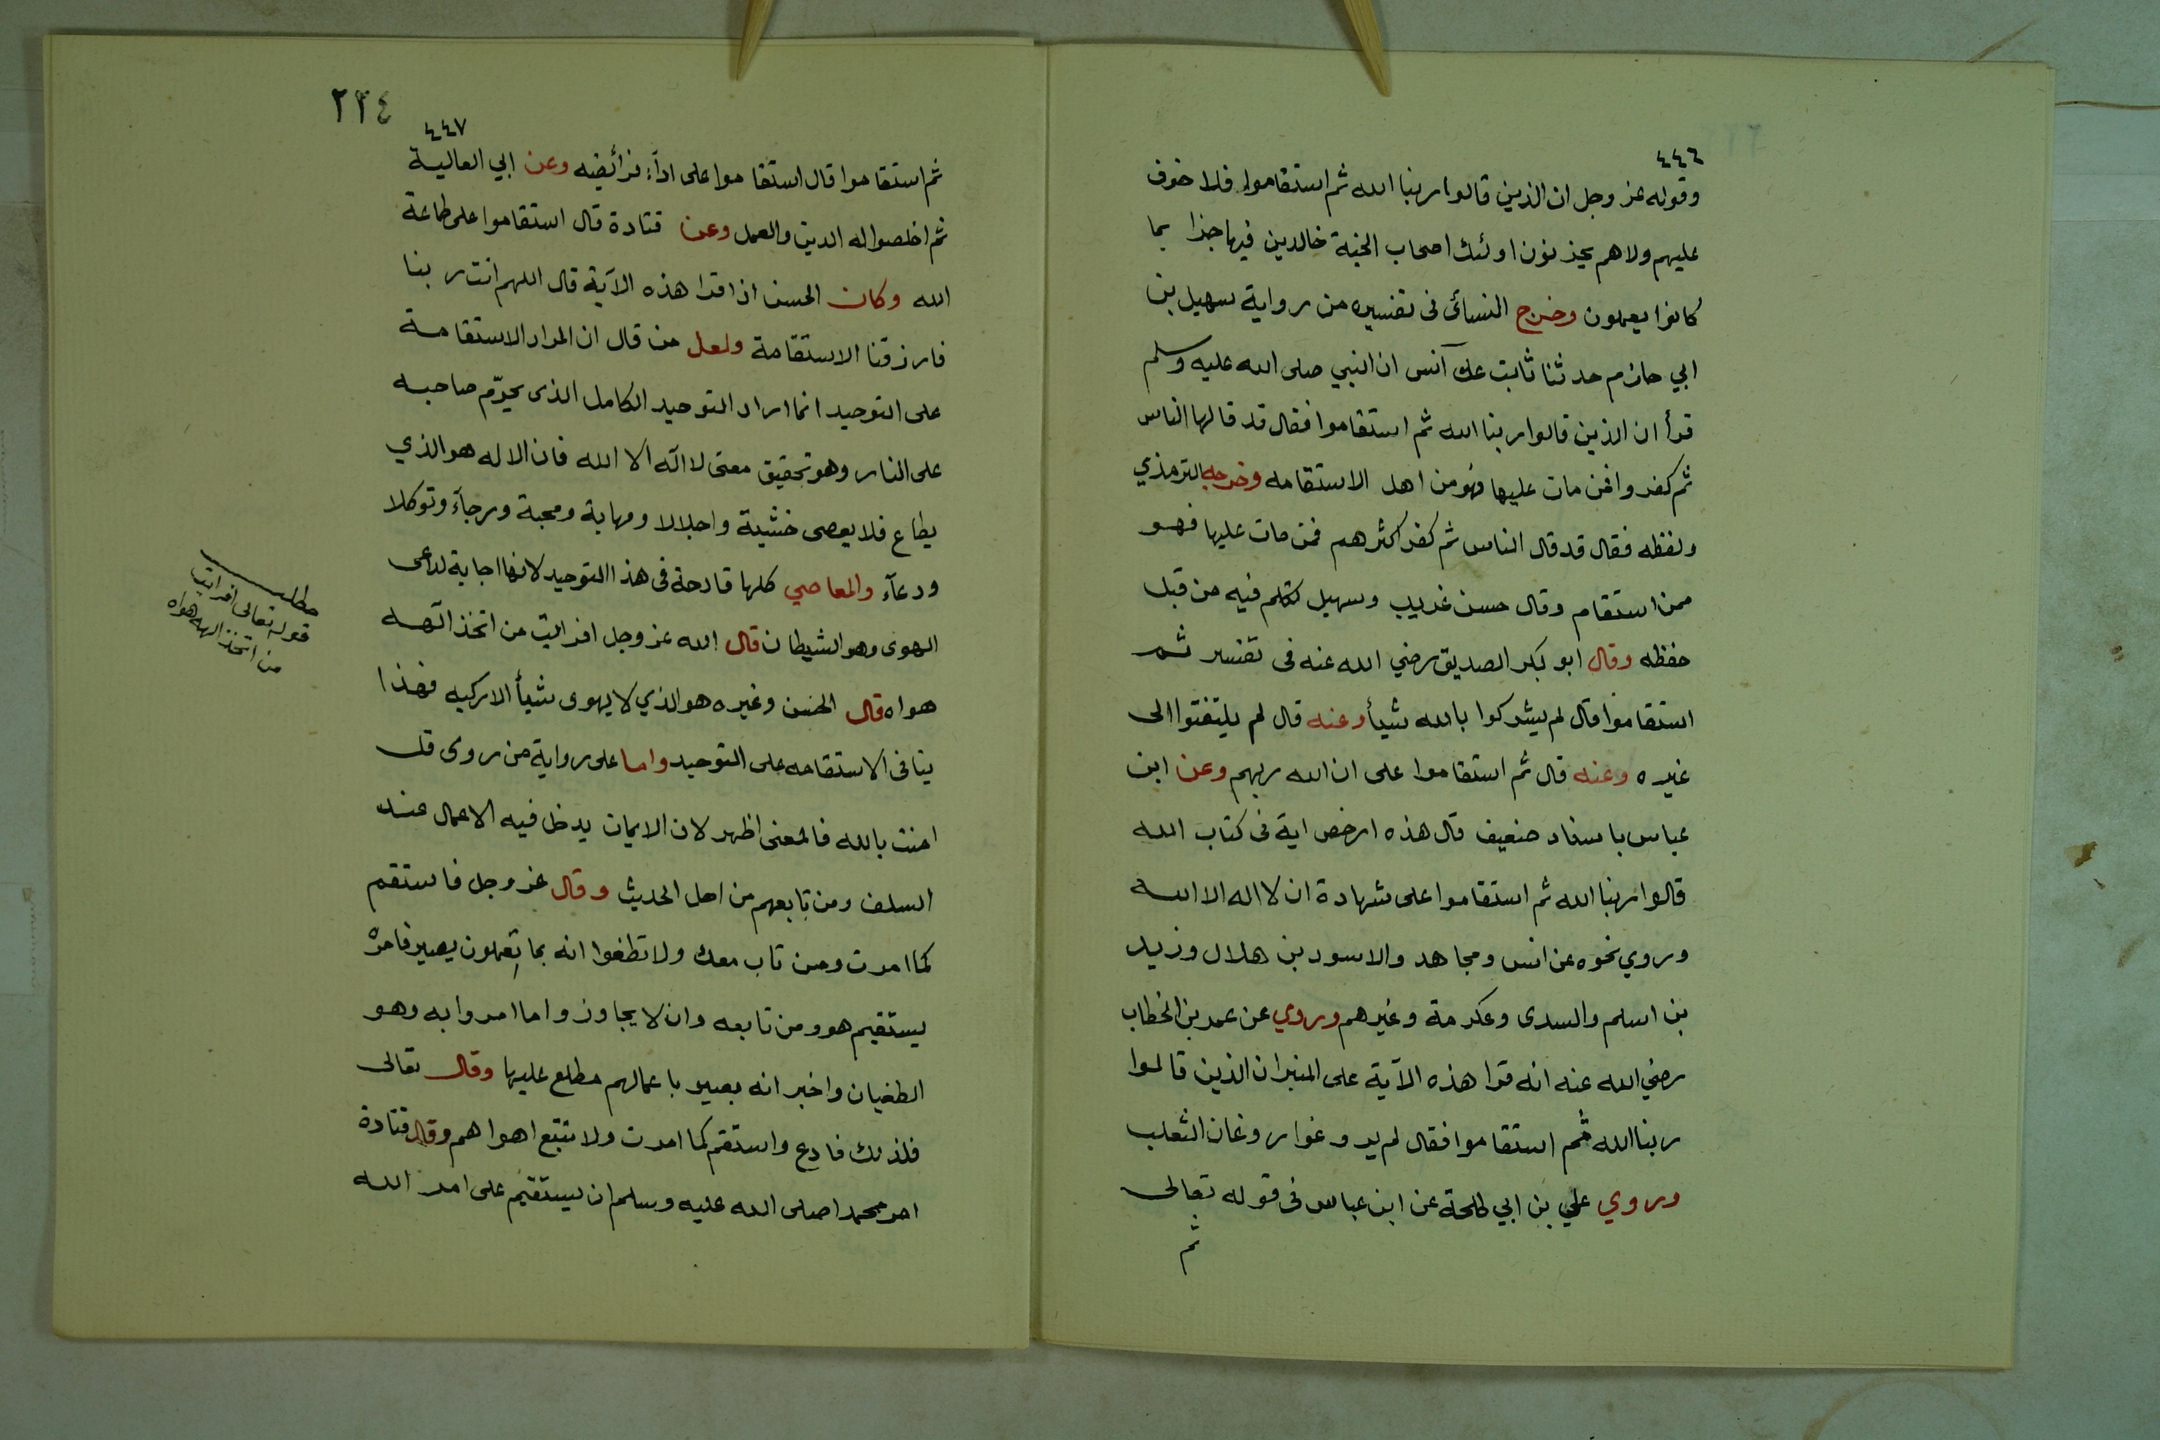 ٤٤٦
وقوله عز وجل ان الذين قالوا ربنا الله ثم استقاموا فلا خوف
عليهم ولا هم يحزنون اولئك اصحاب الجنة خالدين فيها جزا بما
كانوا يعملون وخرج النسائى فى تفسيره من رواية سهيل بن
ابي حازم حدثنا ثابت عن انس ان النبي صلى الله عليه وسلم
قرأ ان الذين قالوا ربنا الله ثم استقاموا فقال قد قالها الناس
ثم كفروا فمن مات عليها فهو من اهل الاستقامه وخرجه الترمذي
ولفظه فقال قد قال الناس ثم كفر اكثرهم فمن مات عليها فهو
ممن استقام وقال حسن غريب وسهيل تكلم فيه من قبل
حفظه وقال ابو بكر الصديق رضي الله عنه فى تفسير ثم
استقاموا قال لم يشركوا بالله شيأ وعنه قال لم يلتفتوا الى
غيره وعنه قال ثم استقاموا على ان الله ربهم وعن ابن
عباس باسناد ضعيف قال هذه ارخص اية فى كتاب الله
قالوا ربنا الله ثم استقاموا على شهادة ان لا اله الا الله
وروي نحوه عن انس ومجاهد والاسود بن هلال وزيد
بن اسلم والسدى وعكرمة وغيرهم وروي عن عمر بن الخطاب
رضي الله عنه انه قرا هذه الآية على المنبر ان الذين قالوا
ربنا الله ثم استقاموا فقال لم يروغوا روغان الثعلب
وروي علي بن ابي طلحة عن ابن عباس فى قوله تعالى
ثم
٢٢٤
٤٤٧
ثم استقاموا قال استقاموا على اداء فرائضه وعن ابي العالية
ثم اخلصوا له الدين والعمل وعن قتادة قال استقاموا على طاعة
الله وكان الحسن اذا قرا هذه الآية قال اللهم انت ربنا
فارزقنا الاستقامة ولعل من قال ان المراد الاستقامة
على التوحيد انما اراد التوحيد الكامل الذى يحرّم صاحبه
على النار وهو تحقيق معنى لا اله الا الله فان الاله هو الذي
يطاع فلا يعصى خشية واجلالا ومهابة ومحبة ورجاء وتوكلا
ودعاء والمعاصي كلها قادحة فى هذا التوحيد لانها اجابة لداعى
الهوى وهو الشيطان قال الله عز وجل افرايت من اتخذ آلهه
هواه قال الحسن وغيره هو الذي لا يهوى شيأ الا ركبه فهذا
ينافى الاستقامه على التوحيد واما على رواية من روى قل
امنت بالله فالمعنى اظهر لان الايمان يدخل فيه الاعمال عند
السلف ومن تابعهم من اهل الحديث وقال عز وجل فاستقم
كما امرت ومن تاب معك ولا تطغوا انه بما تعملون بصير فامره
يستقيم هو ومن تابعه وان لا يجاوزوا ما امروا به وهو
الطغيان واخبر انه بصير باعمالهم مطلع عليها وقال تعالى
فلذلك فادع واستقم كما امرت ولا تتبع اهواهم وقال قتادة
امر محمدا صلى الله عليه وسلم ان يستقيم على امر الله
مطلب
قوله تعالى افرايت
من اتخذ الهه هواه